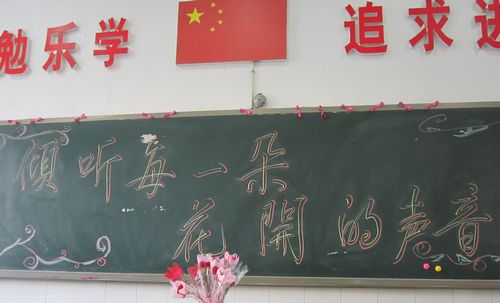 勉乐学
追求进
倾听每一朵
花開的声音